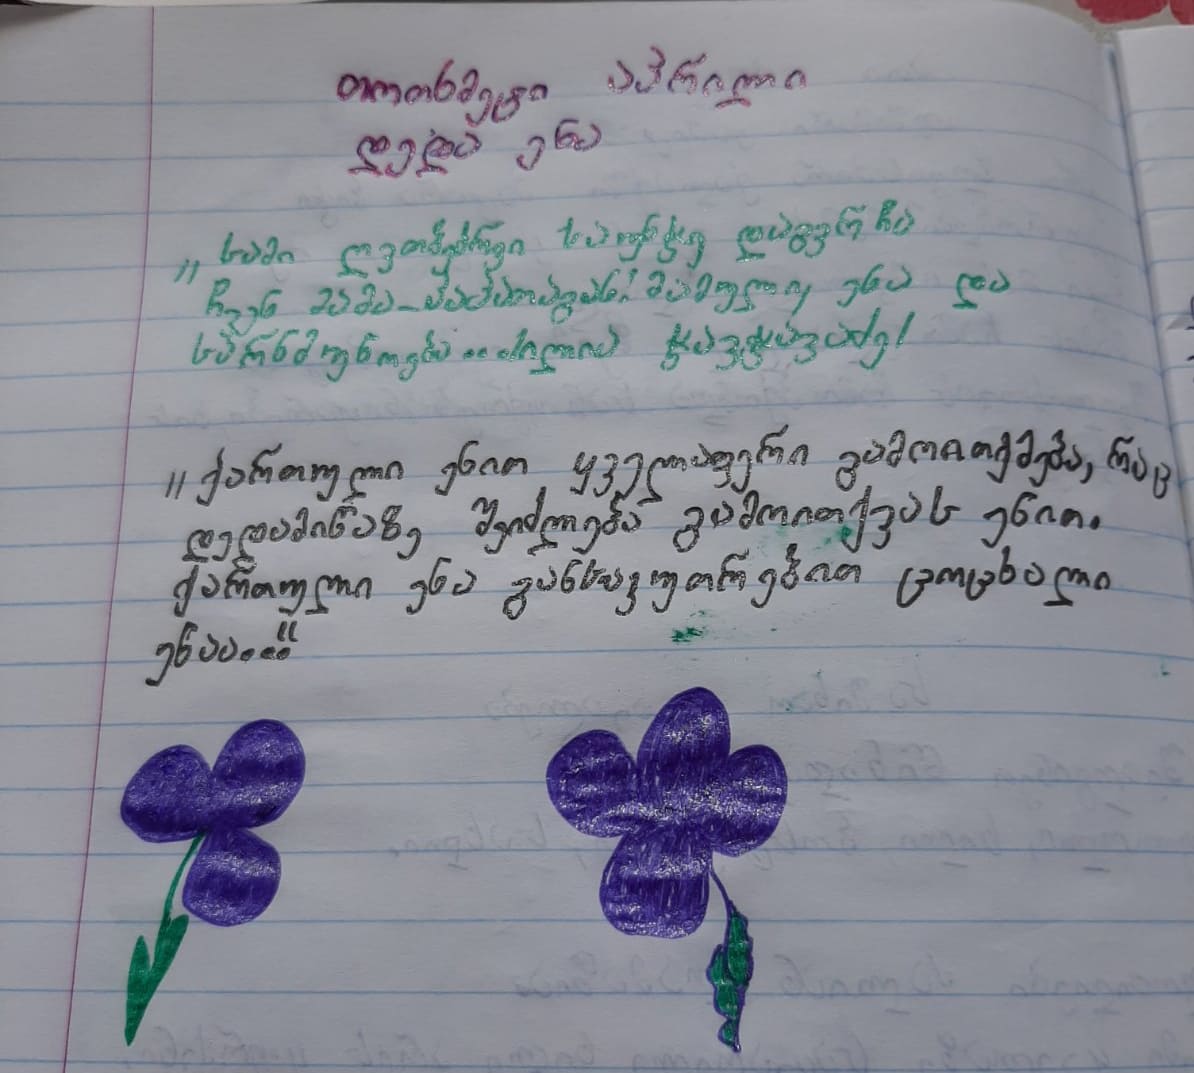 თოთხმეტი აპრილი
დედა ენა
„სამი ღვთებრივი საუნჯე დაგვრჩა
ჩვენ მამა-პაპათაგან: მამული, ენა და
სარწმუნოება... ილია ჭავჭავაძე!
„ქართული ენით ყველაფერი გამოითქმება, რაც
დედამიწაზე შეიძლება გამოითქვას ენით.
ქართული ენა განსაკუთრებით ცოცხალი
ენაა..."